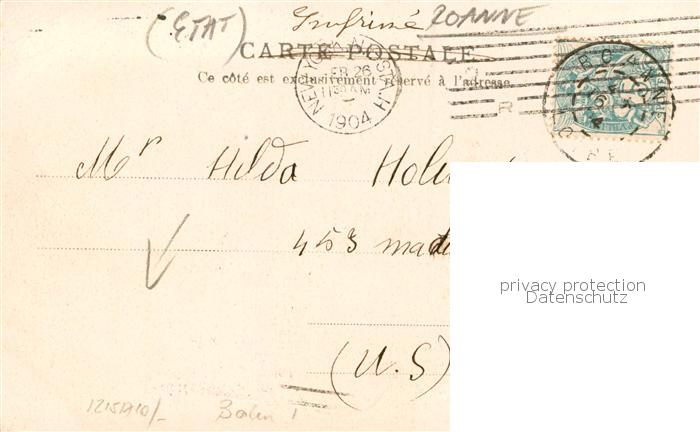 (ETAT) Imprimé ROANNE
CARTE POSTALE
Ce côté est exclusivement réservé à l'adresse
NEW YORK, N.Y. STA. H
FEB 26
1130 AM
1904
ROANNE
R
Mr Hilda
453
(U.S)
privacy protection
Datenschutz